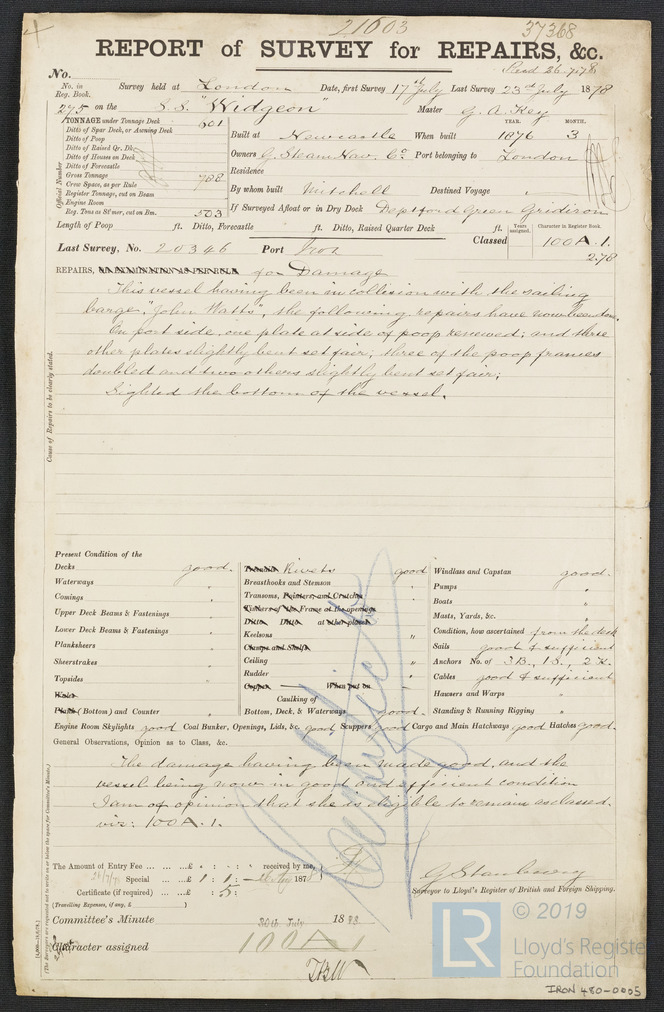 21603
37368
REPORT of SURVEY for REPAIRS, &c.
Read 26-7-78
No.
No. in Reg. Book. Survey held at London Date, first Survey 17th July Last Survey 23rd July 1878
275 on the S.S. "Widgeon" Master G. A. Key
TONNAGE under Tonnage Deck 601
Ditto of Spar Deck, or Awning Deck
Ditto of Poop
Ditto of Raised Qr. Dk.
Ditto of Houses on Deck
Ditto of Forecastle
Gross Tonnage 788
Crew Space, as per Rule
Register Tonnage, cut on Beam
Engine Room
Reg. Tons as St'mer, cut on Bm. 503
Official Number
YEAR. MONTH.
Built at Newcastle When built 1876 3
Owners G. Steam Nav. Co. Port belonging to London
Residence
By whom built Mitchell Destined Voyage
If Surveyed Afloat or in Dry Dock Deptford Green Gridiron
Length of Poop ft. Ditto, Forecastle ft. Ditto, Raised Quarter Deck ft.
Last Survey, No. 20346 Port Iron
Classed Years assigned. Character in Register Book.
100A.1.
2.78
REPAIRS, for Damage
This vessel having been in collision with the sailing
barge, "John Watts", the following repairs have now been done.
On port side, one plate at side of poop renewed; and three
other plates slightly bent set fair; three of the poop frames
doubled and two others slightly bent set fair;
Sighted the bottom of the vessel.
Cause of Repairs to be clearly stated.
Present Condition of the
Decks good.
Waterways "
Comings "
Upper Deck Beams & Fastenings "
Lower Deck Beams & Fastenings "
Planksheers "
Sheerstrakes "
Topsides "
Wales
Plank (Bottom) and Counter "
Treenails Rivets good
Breasthooks and Stemson "
Transoms, Pointers, and Crutches "
Timbers of the Frame at the openings
Ditto Ditto at other places
Keelsons "
Clamps and Shelfs
Ceiling "
Rudder "
Copper When put on
Caulking of
Bottom, Deck, & Waterways good.
Windlass and Capstan good.
Pumps "
Boats "
Masts, Yards, &c. "
Condition, how ascertained from the deck
Sails good & sufficient
Anchors No. of 3B., 1S., 2K.
Cables good & sufficient
Hawsers and Warps "
Standing & Running Rigging "
Engine Room Skylights good Coal Bunker, Openings, Lids, &c. good, Scuppers good Cargo and Main Hatchways good Hatches good.
General Observations, Opinion as to Class, &c.
The damage having been made good, and the
vessel being now in good and efficient condition
I am of opinion that she is eligible to remain as classed.
viz: 100A.1.
The Amount of Entry Fee ... ... ... £ : : received by me,
Special ... £ 1 : 1 : 187
Certificate (if required) ... £ : 5 :
(Travelling Expenses, if any, £ )
G Stanbury
Surveyor to Lloyd's Register of British and Foreign Shipping.
Committee's Minute 30th July 18
Character assigned 100A1
(The Surveyors are requested not to write on or below the space for Committee's Minute.)
LR
© 2019
Lloyd's Register
Foundation
IRON 480-0005